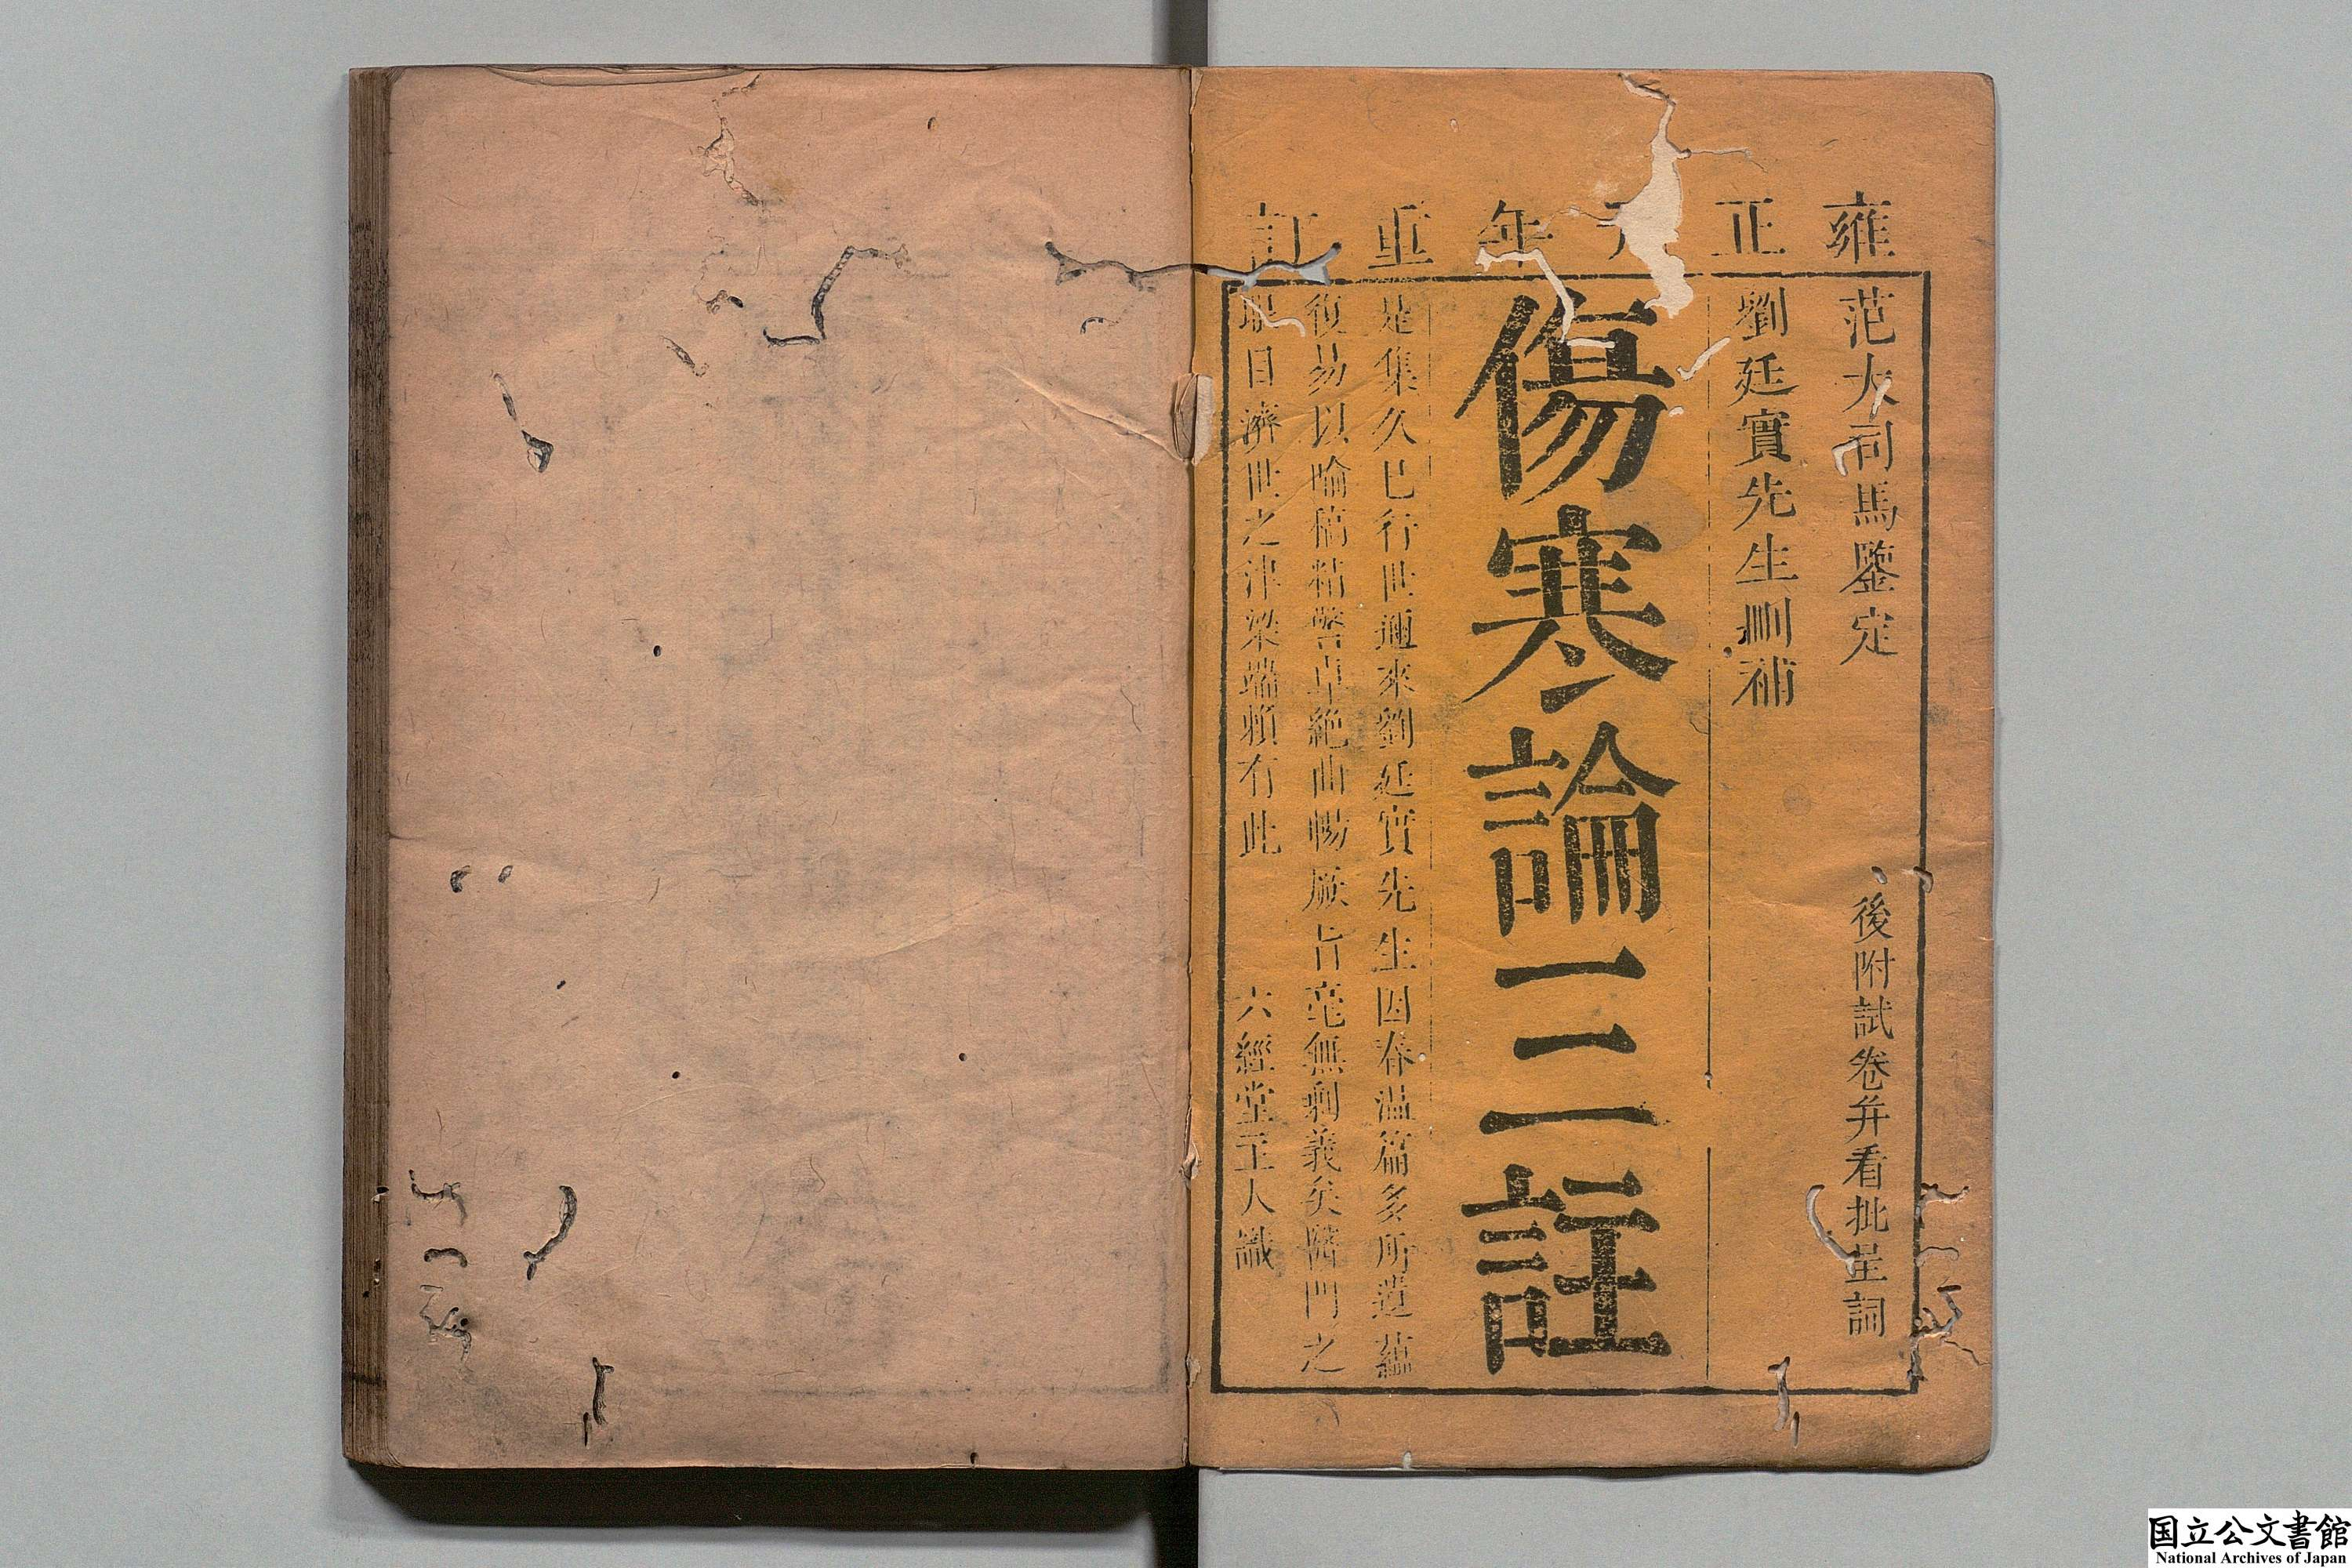 雍正元年重訂
范大司馬鑒定
後附試卷并看批呈詞
劉廷實先生刪補
傷寒論三註
是集久已行世邇來劉廷實先生因春温篇多所遺蘊
復易以喻稿精警卓絶曲暢厥旨毫無剩義矣醫門之
日濟世之津梁端賴有此
六經堂主人識
国立公文書館
National Archives of Japan